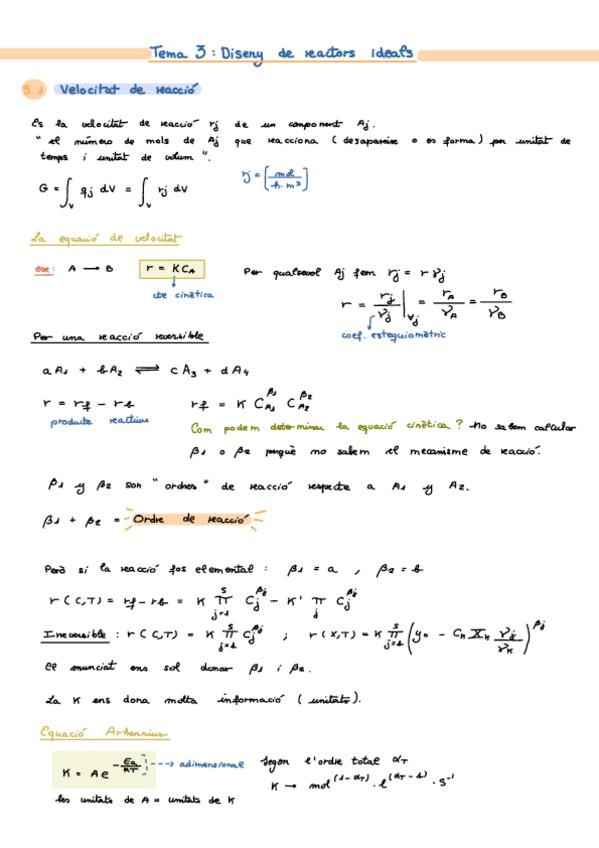 Tema 3: Diseny de reactors ideals
3.1 Velocitat de reacció
Es la velocitat de reacció rj de un component Aj.
" el número de mols de Aj que reacciona ( desapareix o es forma ) per unitat de
temps i unitat de volum ".
G = ∫_V qj dV = ∫_V rj dV rj = [mol / h·m³]
La equació de velocitat
exe: A → B r = K C_A Per qualsevol Aj fem rj = r γj
cte cinètica r = rj/γj |∀j = r_A/γ_A = r_B/γ_B
coef. estequiomètric
Per una reacció reversible
a A1 + b A2 ⇌ c A3 + d A4
r = rf - rb rf = K C_A1^β1 C_A2^β2
producte reactius
Com podem determinar la equació cinètica? No sabem calcular
β1 o β2 perquè no sabem el mecanisme de reacció.
β1 y β2 son " ordres " de reacció respecte a A1 y A2.
β1 + β2 = Ordre de reacció
Però si la reacció fos elemental : β1 = a , β2 = b
r (C,T) = rf - rb = K ∏_{j=1}^{S} Cj^βj - K' ∏_j Cj^βj
Irreversible : r (C,T) = K ∏_{j=1}^{S} Cj^βj ; r (X,T) = K ∏_{j=1}^{S} (yo - Ck Xk γj/γk)^βj
El enunciat ens sol donar β1 i β2.
La K ens dona molta informació ( unitats ).
Equació Arhennius
K = A e^(-Ea/RT) → adimensional Segon l'ordre total αT
K → mol^(1-αT) · l^(αT-1) · s^-1
les unitats de A = unitats de K